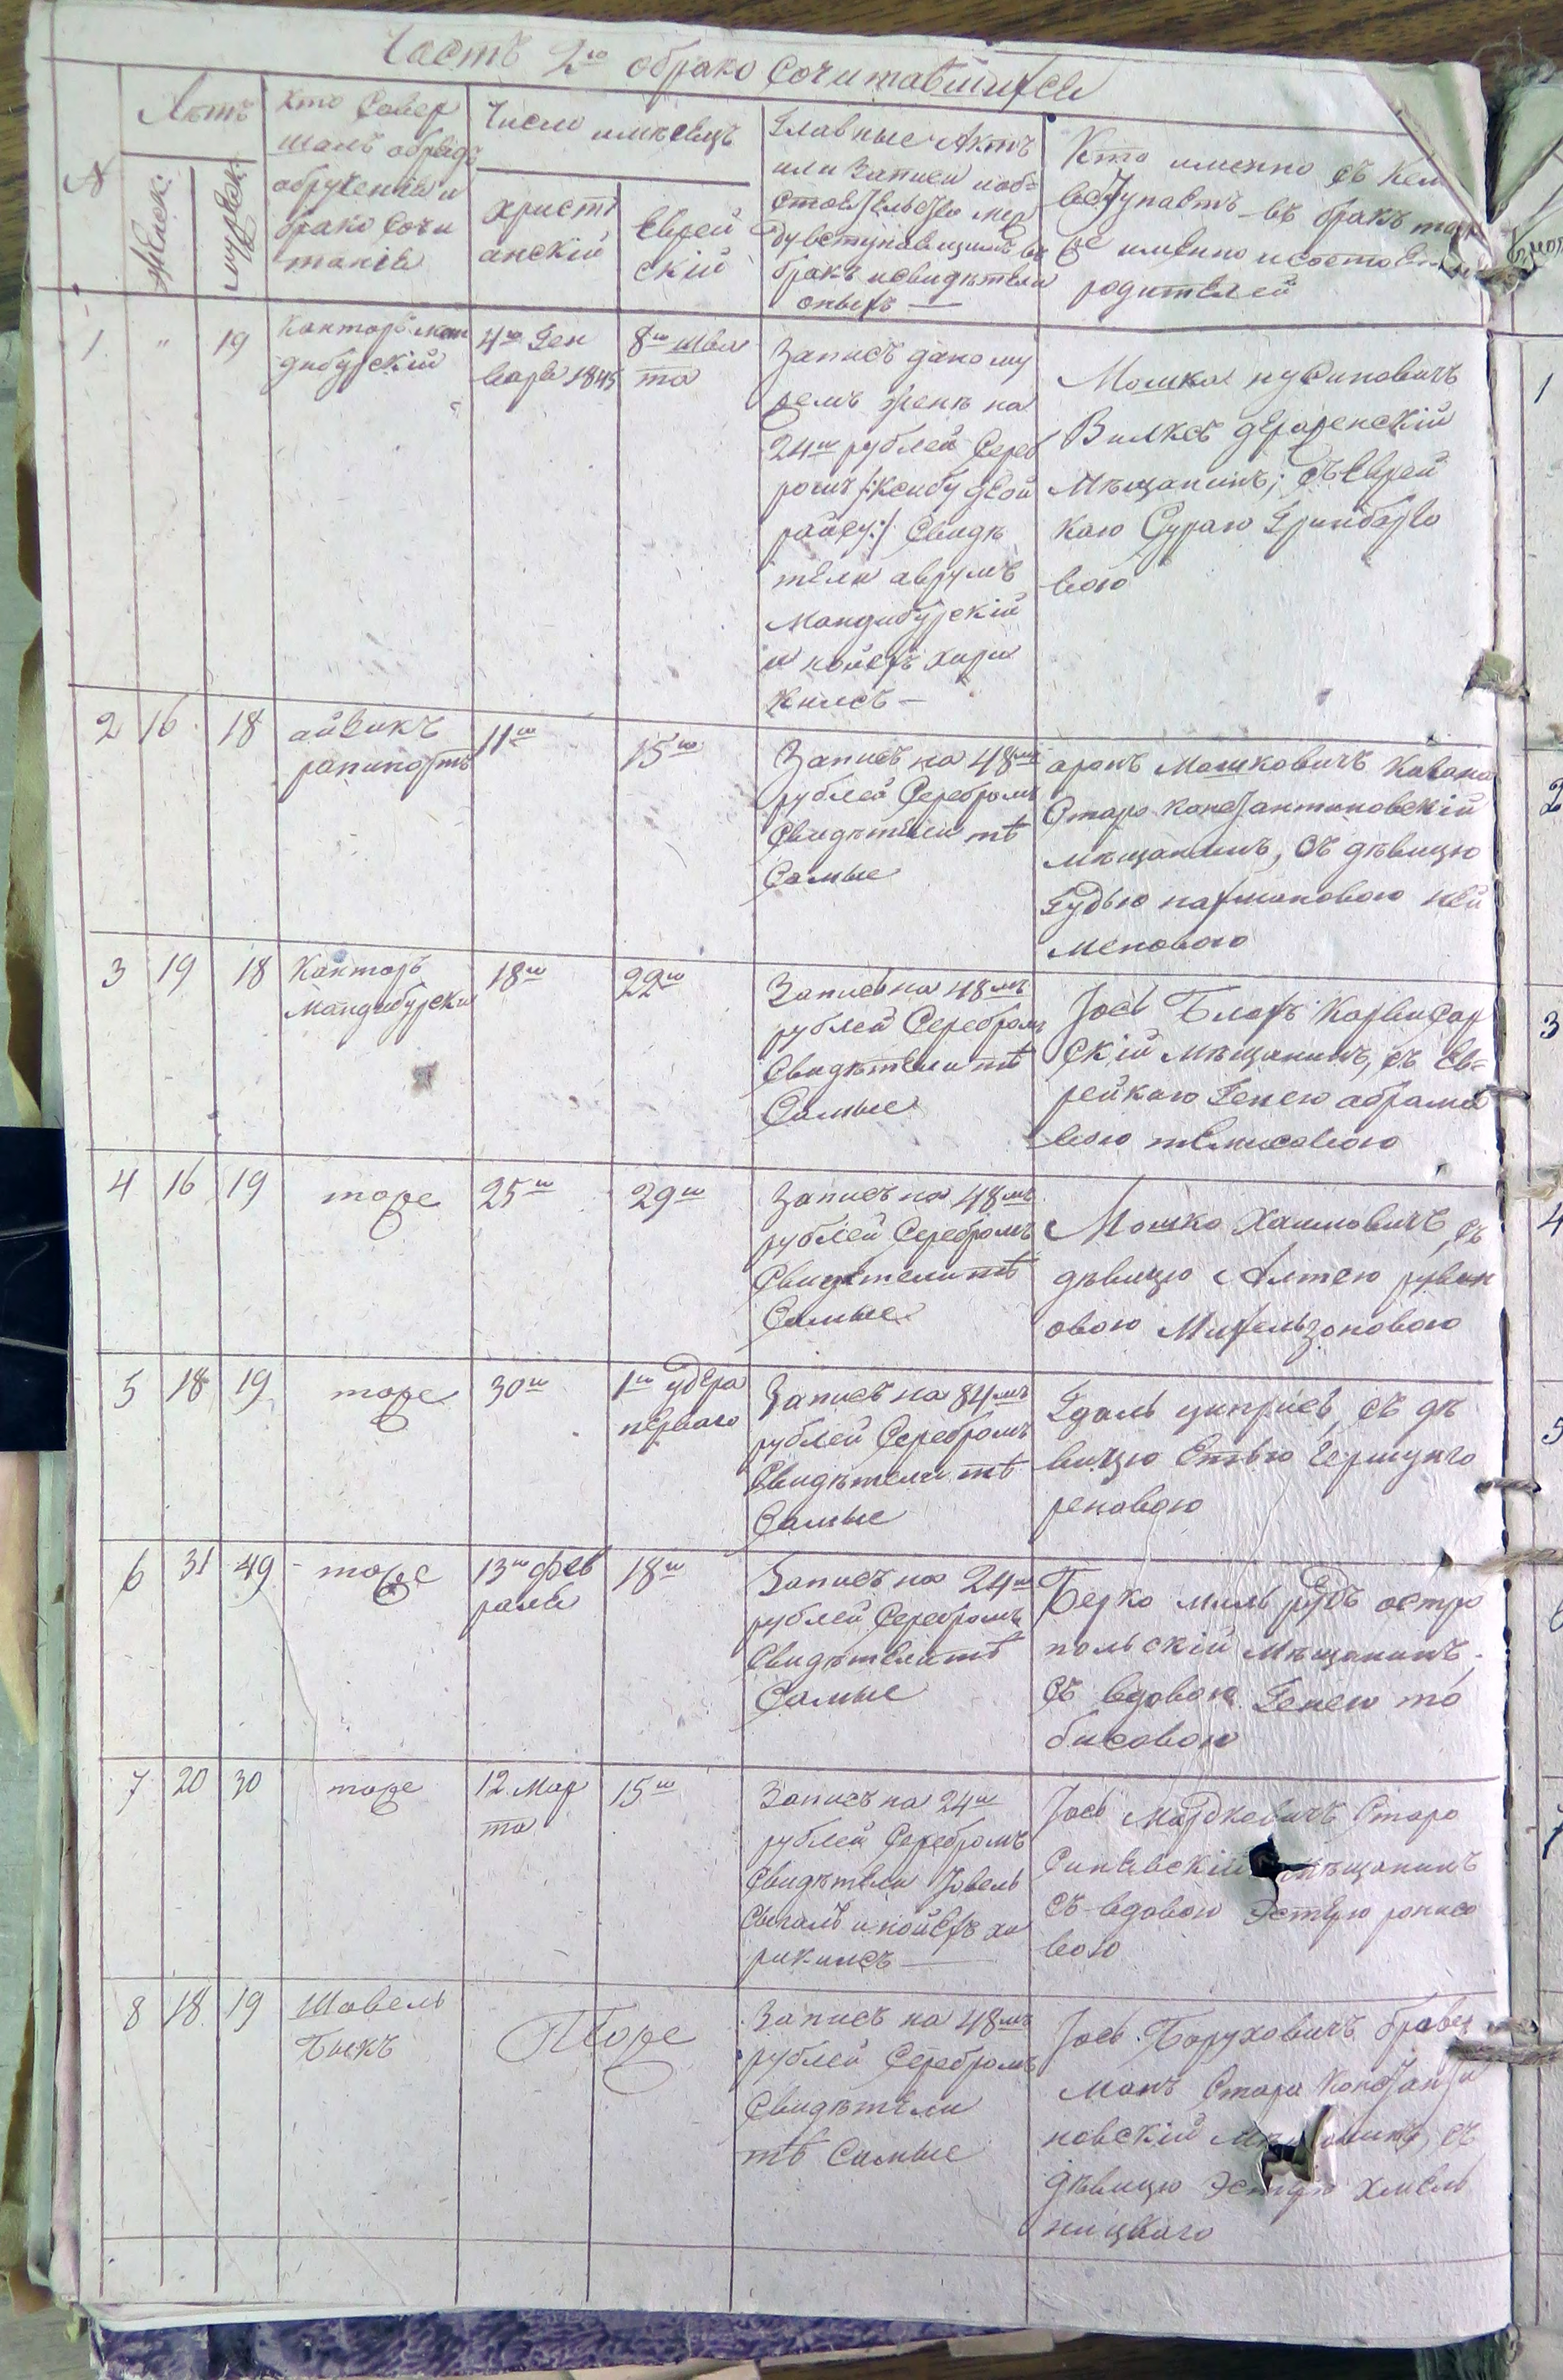 Часть 2ю обрако Сочитавшихся
N
Лѣтъ
Женск:
мужеск:
Кто Совер
шалъ обрядъ
обрученія и
брако Сочи
танія
Число имѣсяцъ
христі
анскій
Еврей
скій
Главные Актъ
или записи иоб=
стоятельство меж
ду вступившимъ въ
бракъ исвидѣтели
оныхъ —
Кто именно съ Кем
вступаетъ въ бракъ так
же именно исостоя
родителей
1.
"
19
Канторъ ман
дибурскій
4го Ген
варя 1845
8го Шва
та
Запись дано му
жемъ женѣ на
24ш рублей Сереб
ромъ /:Ксибу дѣой
райсу:/ Свидѣ
тели аврумъ
Мандибурскій
и пойсехъ хари
килсъ —
Мошка нусиновичъ
Вилксъ деражскій
Мѣщанинъ; съ Еврей
каю Сураю Гринбарго
вою
2
16
18
айзикъ
рапипортъ
11го
15го
Запись на 48мъ
рублей Серебромъ
Свидѣтели тѣ
Самые
аронъ Мошковичъ
Старо константиновскій
мѣщанинъ, съ дѣвицю
Гудью нахмановою ней
меновою
3
19
18
Канторъ
Мандибурскій
18го
22го
Запись на 48мъ
рублей Серебромъ
Свидѣтели тѣ
Самые
Іось Блахъ
скій мѣщанинъ, съ Ев=
рейкаю Генею абрамо
вою
4
16
19
тоже
25го
29го
Запись на 48мъ
рублей Серебромъ
Свидѣтели тѣ
Самые
Мошко Хаимовичъ, съ
дѣвицю Алтею рувин
овою Михельзоновою
5
18
19
тоже
30го
1го удера
перваго
Запись на 84мъ
рублей Серебромъ
Свидѣтели тѣ
Самые
Гдаль ципрісъ, съ дѣ
вицю Етью Гершунго
реновою
6
31
49
тоже
13го фев
раля
18го
Запись на 24ш
рублей Серебромъ
Свидѣтели тѣ
Самые
Берко остро
польскій Мѣщанинъ,
съ вдовою Генею то
бисовою
7
20
30
тоже
12. Мар
та
15го
Запись на 24ш
рублей Серебромъ
Свидѣтели Іовель
Свигалъ и пойсехъ ха
рикилсъ —
Іось Мардковичъ Старо
Синявскій мѣщанинъ
съ вдовою Эстерю
вою
8
18
19
Шавель
Быкъ
Тоже
Запись на 48мъ
рублей Серебромъ
Свидѣтели
тѣ Самые
Іось Боруховичъ бравер
манъ Старо Константи
новскій мѣщанинъ, съ
дѣвицю Эстерю Хмель
ницкаго
1
2
3
4
5
6
7